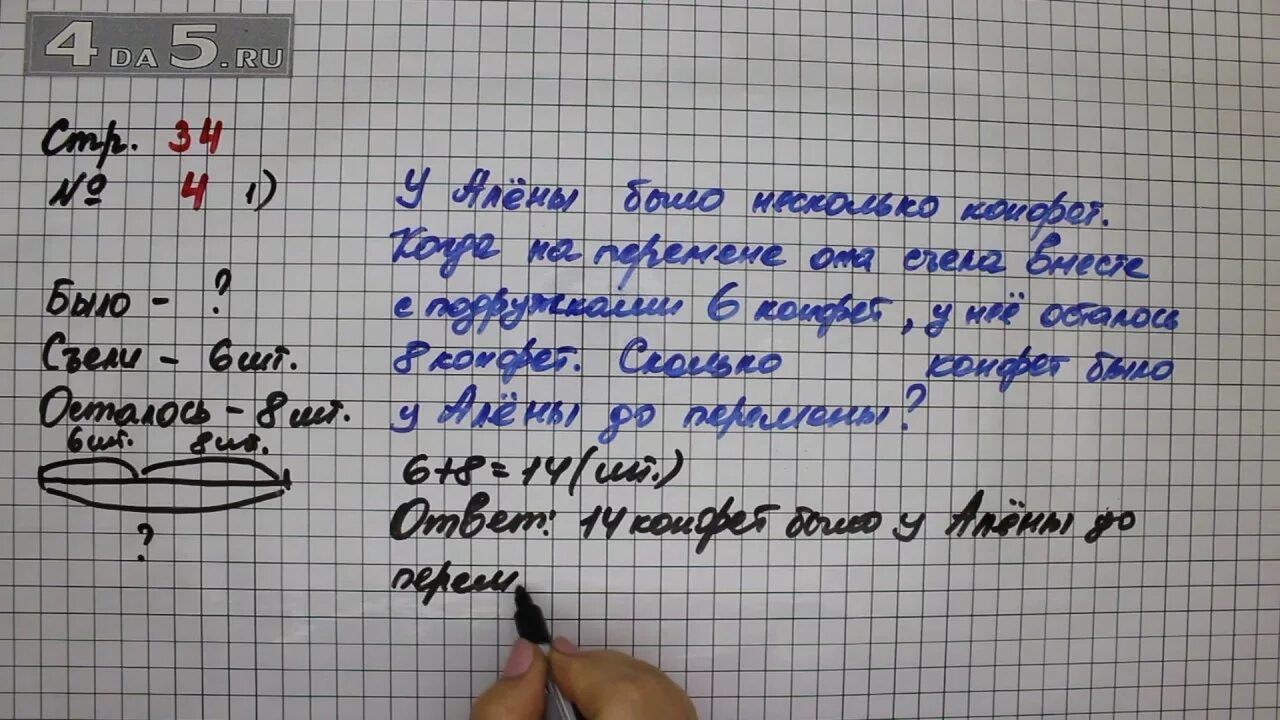 4 DA 5.RU
Стр. 34
№ 4 1)
Было - ?
Съели - 6 шт.
Осталось - 8 шт.
6 шт. 8 шт.
?
У Алёны было несколько конфет.
Когда на перемене она съела вместе
с подружками 6 конфет, у неё осталось
8 конфет. Сколько конфет было
у Алёны до перемены?
6+8=14 (шт.)
Ответ: 14 конфет было у Алёны до
перем